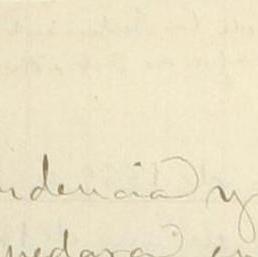 ndencia y
uedara en